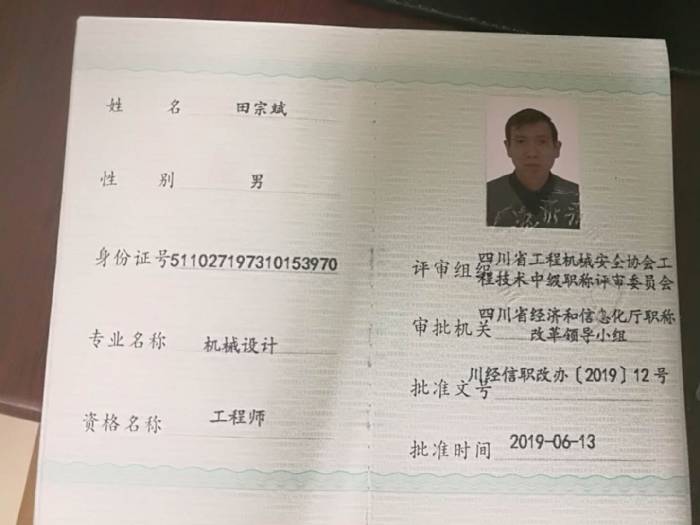 姓 名 田宗斌
性 别 男
身份证号 511027197310153970
专业名称 机械设计
资格名称 工程师
评审组织 四川省工程机械安全协会工
程技术中级职称评审委员会
审批机关 四川省经济和信息化厅职称
改革领导小组
批准文号 川经信职改办〔2019〕12号
批准时间 2019-06-13